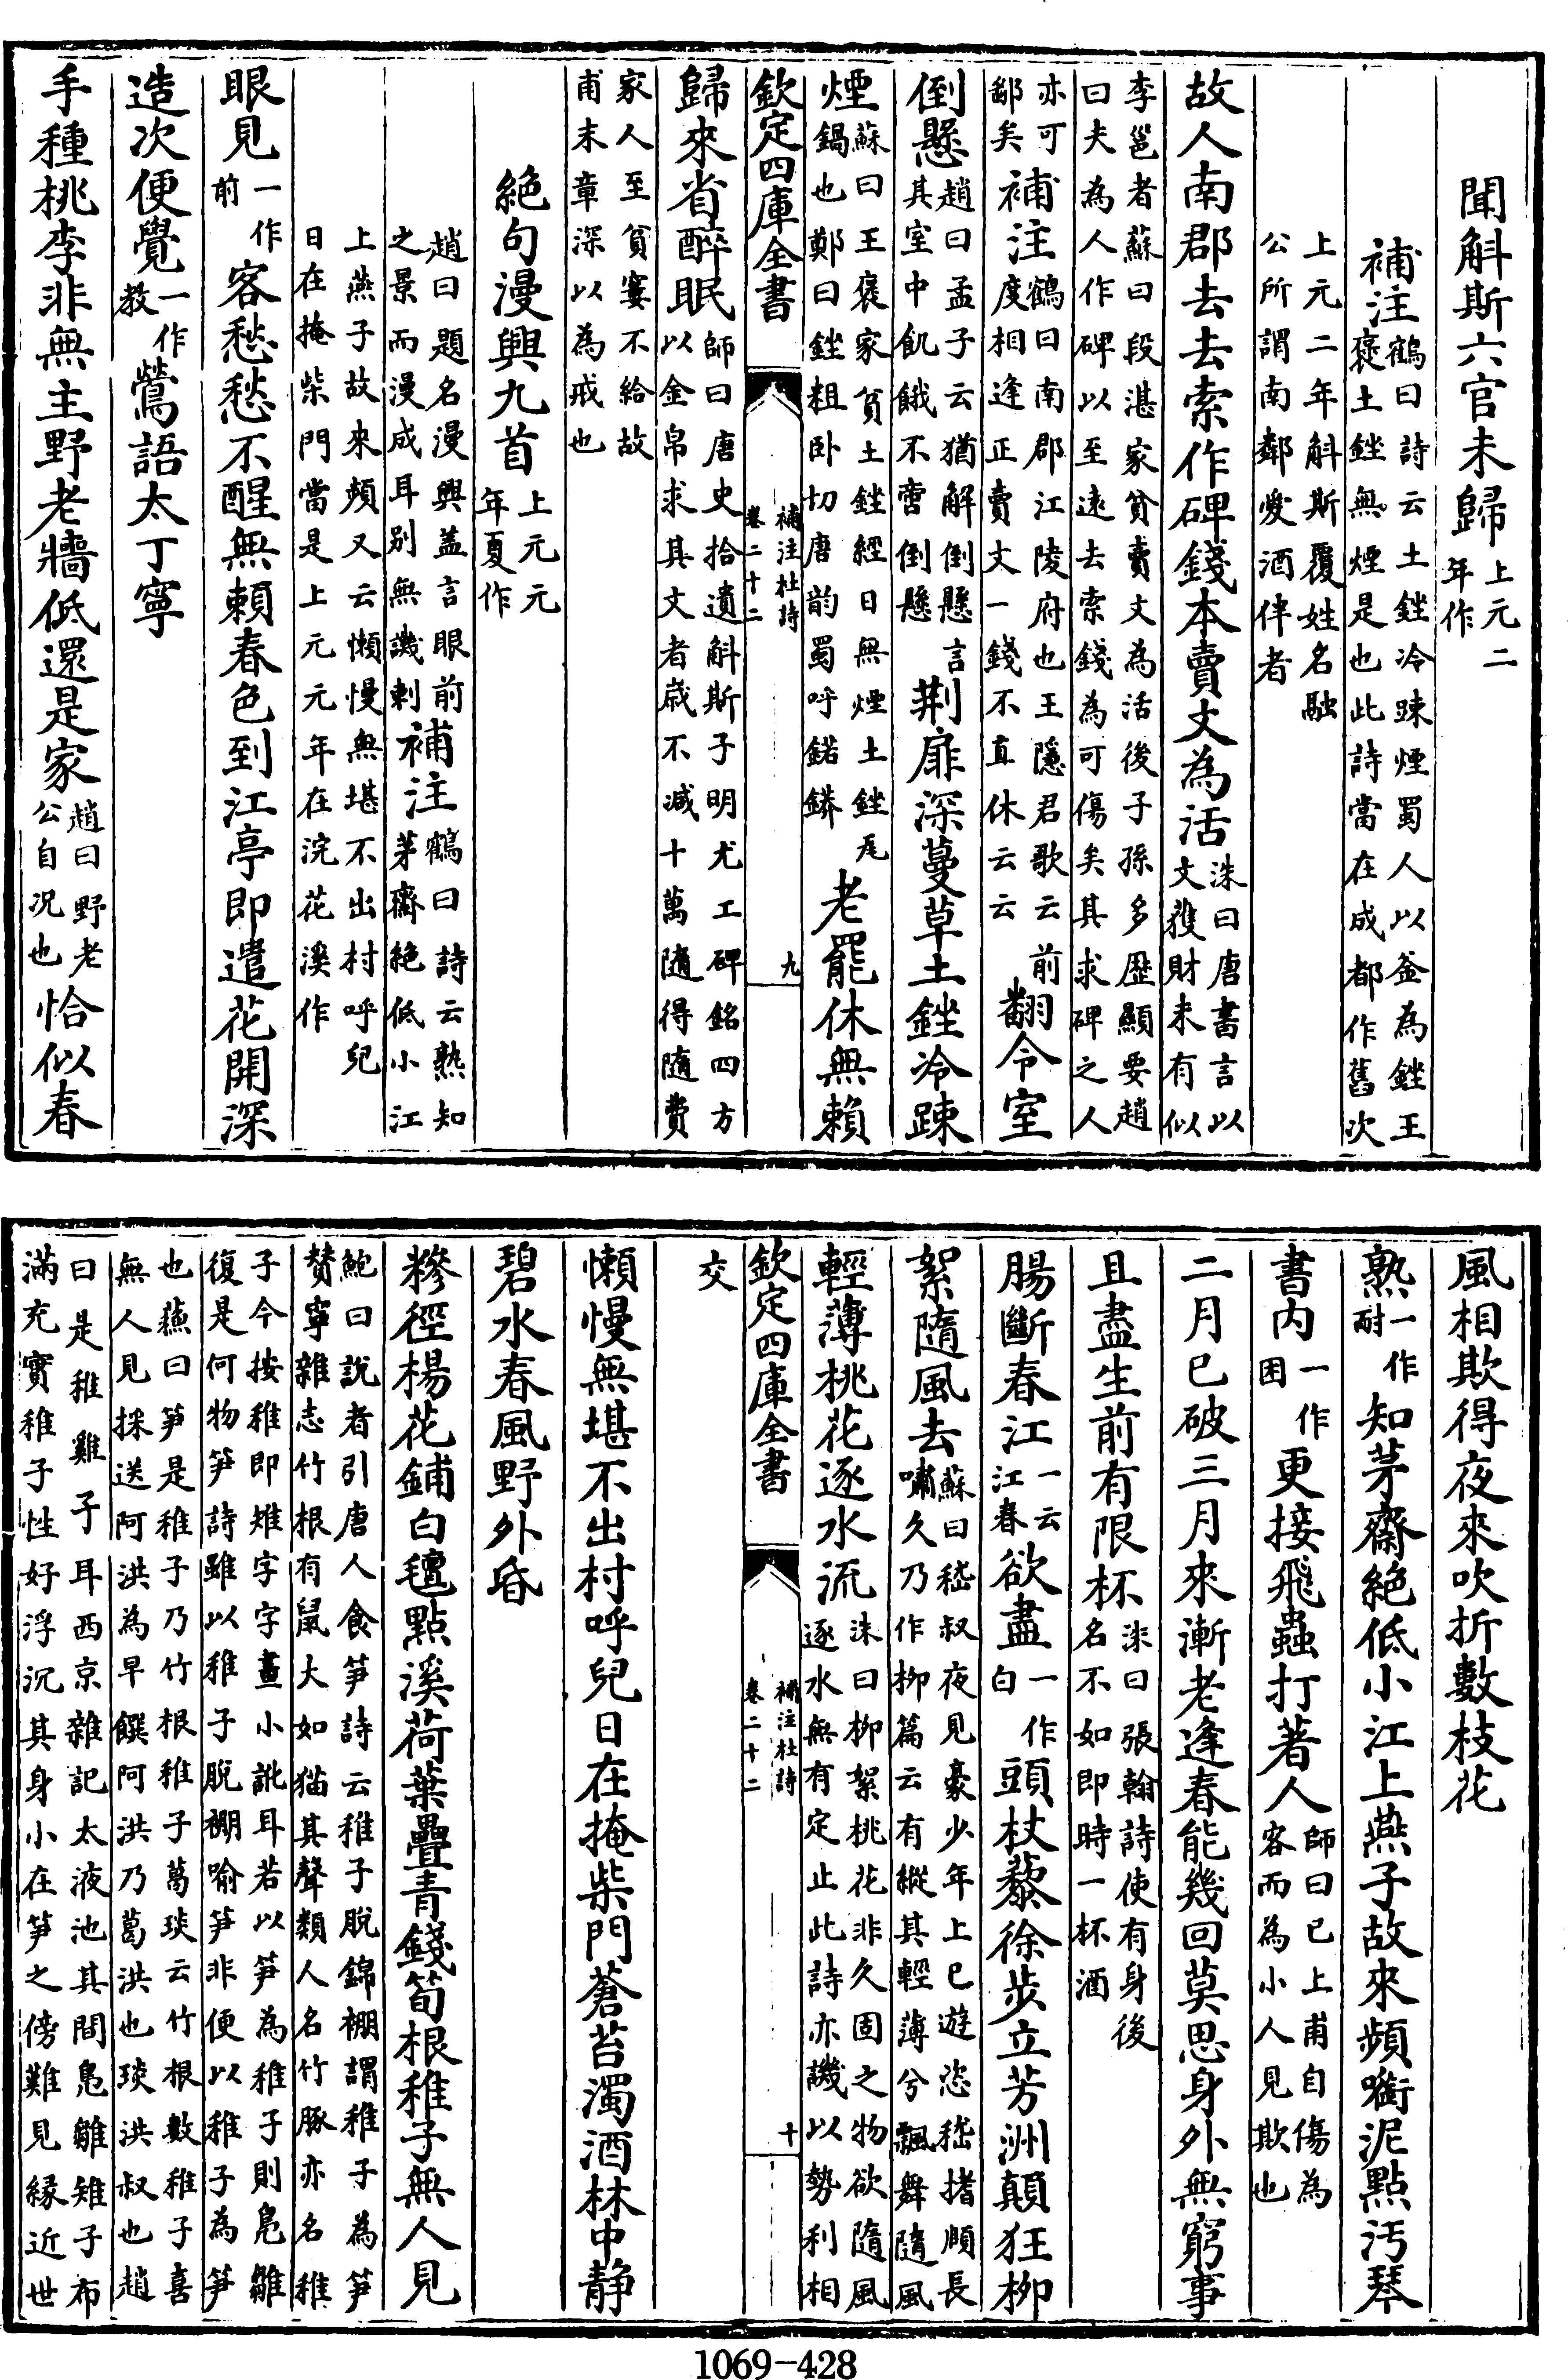 聞斛斯六官未歸上元二年作
補注鶴曰詩云土銼冷踈煙蜀人以釜為銼王褒土銼無煙是也此詩當在成都作舊次
上元二年斛斯覆姓名融公所謂南鄰愛酒伴者
故人南郡去去索作碑錢本賣文為活洙曰唐書言以文獲財未有似
李邕者蘇曰段湛家貧賣文為活後子孫多歴顯要趙曰夫為人作碑以至遠去索錢為可傷矣其求碑之人
亦可鄙矣補注鶴曰南郡江陵府也王隱君歌云前度相逢正賣文一錢不直休云云翻令室
倒懸趙曰孟子云猶解倒懸言其室中飢餓不啻倒懸荆扉深蔓草土銼冷踈
煙蘇曰王褒家貧土銼經日無煙土銼瓦鍋也鄭曰銼粗卧切唐韵蜀呼鍩老罷休無賴
欽定四庫全書 補注杜詩卷二十二 九
歸來省醉眠師曰唐史拾遺斛斯子明尤工碑銘四方以金帛求其文者嵗不減十萬隨得隨費
家人至貧窶不給故甫末章深以為戒也
絶句漫興九首上元元年夏作
趙曰題名漫興蓋言眼前之景而漫成耳别無譏刺補注鶴曰詩云熟知茅齋絶低小江
上燕子故來頻又云懶慢無堪不出村呼兒日在掩柴門當是上元元年在浣花溪作
眼見一作前客愁愁不醒無賴春色到江亭即遣花開深
造次便覺一作教鶯語太丁寧
手種桃李非無主野老牆低還是家趙曰野老公自况也恰似春
風相欺得夜來吹折數枝花
熟一作耐知茅齋絶低小江上燕子故來頻銜泥點汚琴
書内一作困更接飛蟲打著人師曰已上甫自傷為客而為小人見欺也
二月已破三月來漸老逢春能幾回莫思身外無窮事
且盡生前有限杯洙曰張翰詩使有身後名不如即時一杯酒
腸斷春江一云江春欲盡一作白頭杖藜徐步立芳洲顛狂柳
絮隨風去蘇曰嵇叔夜見豪少年上巳遊恣嵇㨪頋長嘯久乃作柳篇云有縱其輕薄兮飄舞隨風
輕薄桃花逐水流洙曰柳絮桃花非久固之物欲隨風逐水無有定止此詩亦譏以勢利相
欽定四庫全書 補注杜詩卷二十二 十
交
懶慢無堪不出村呼兒日在掩柴門蒼苔濁酒林中静
碧水春風野外昏
糝徑楊花鋪白氊點溪荷葉疊青錢筍根稚子無人見
鮑曰說者引唐人食笋詩云稚子脫錦棚謂稚子為笋賛寧雜志竹根有鼠大如猫其聲類人名竹豚亦名稚
子今按稚即雉字字畫小訛耳若以笋為稚子則鳧雛復是何物笋詩雖以稚子脫棚喻笋非便以稚子為笋
也蘓曰笋是稚子乃竹根稚子葛琰云竹根數稚子喜無人見採送阿洪為早饌阿洪乃葛洪也琰洪叔也趙
曰是稚雞子耳西京雜記太液池其間鳧雛雉子布滿充實稚子性好浮沉其身小在笋之傍難見縁近世
1069-428